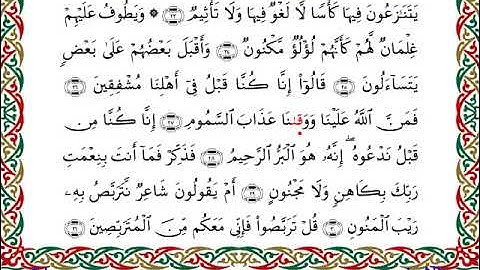 يَتَنَٰزَعُونَ فِيهَا كَأْسًا لَّا لَغْوٌ فِيهَا وَلَا تَأْثِيمٌ ٢٣ ۞ وَيَطُوفُ عَلَيْهِمْ
غِلْمَانٌ لَّهُمْ كَأَنَّهُمْ لُؤْلُؤٌ مَّكْنُونٌ ٢٤ وَأَقْبَلَ بَعْضُهُمْ عَلَىٰ بَعْضٍ
يَتَسَآءَلُونَ ٢٥ قَالُوٓا۟ إِنَّا كُنَّا قَبْلُ فِىٓ أَهْلِنَا مُشْفِقِينَ ٢٦
فَمَنَّ ٱللَّهُ عَلَيْنَا وَوَقَىٰنَا عَذَابَ ٱلسَّمُومِ ٢٧ إِنَّا كُنَّا مِن
قَبْلُ نَدْعُوهُ ۖ إِنَّهُۥ هُوَ ٱلْبَرُّ ٱلرَّحِيمُ ٢٨ فَذَكِّرْ فَمَآ أَنتَ بِنِعْمَتِ
رَبِّكَ بِكَاهِنٍ وَلَا مَجْنُونٍ ٢٩ أَمْ يَقُولُونَ شَاعِرٌ نَّتَرَبَّصُ بِهِۦ
رَيْبَ ٱلْمَنُونِ ٣٠ قُلْ تَرَبَّصُوا۟ فَإِنِّى مَعَكُم مِّنَ ٱلْمُتَرَبِّصِينَ ٣١